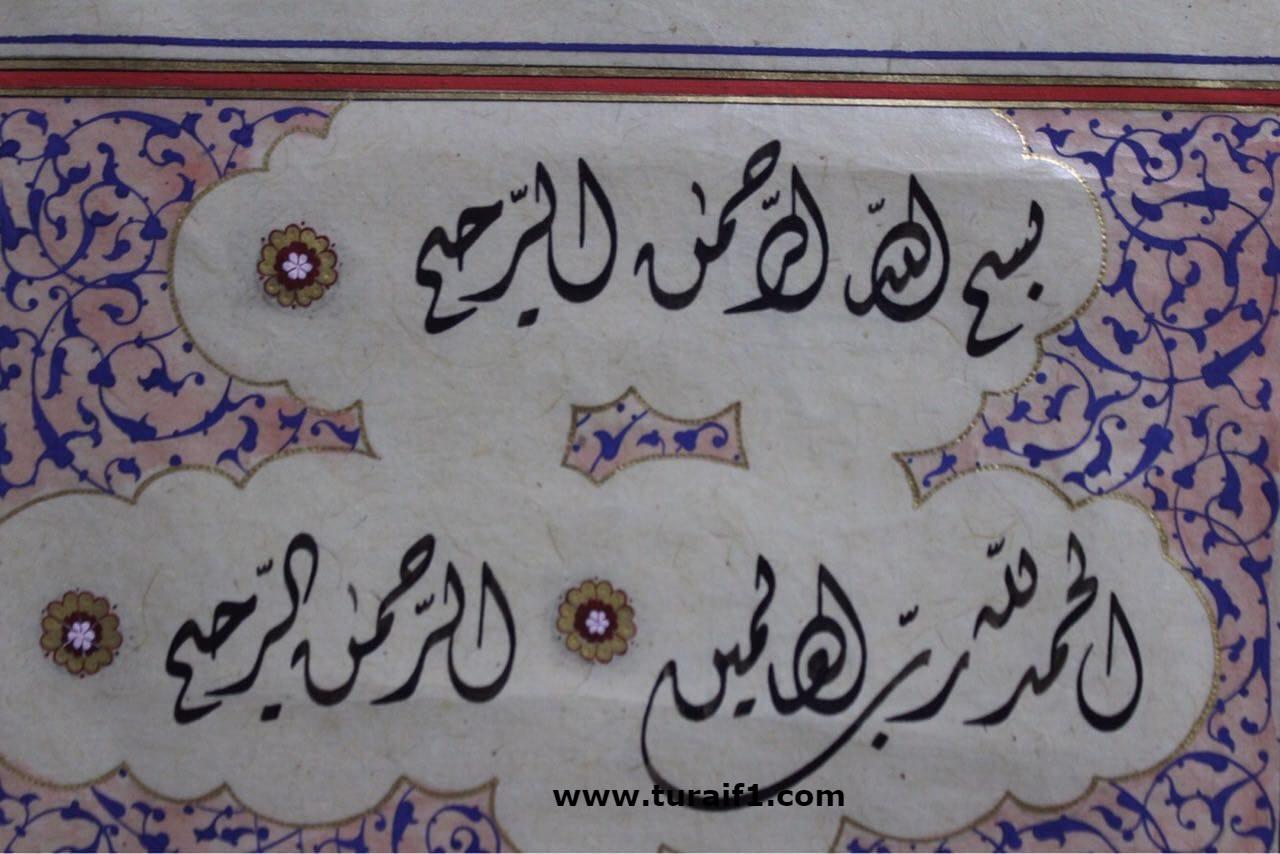 بسم الله الرحمن الرحيم
الحمد لله رب العالمين الرحمن الرحيم
www.turaif1.com